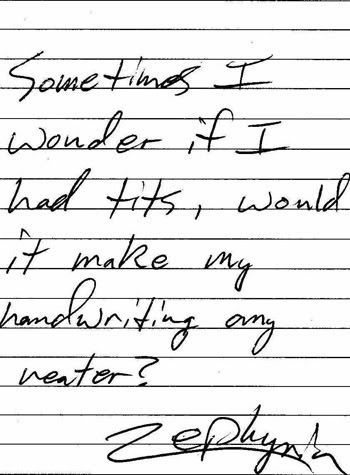 Sometimes I
wonder if I
had tits, would
it make my
handwriting any
neater?